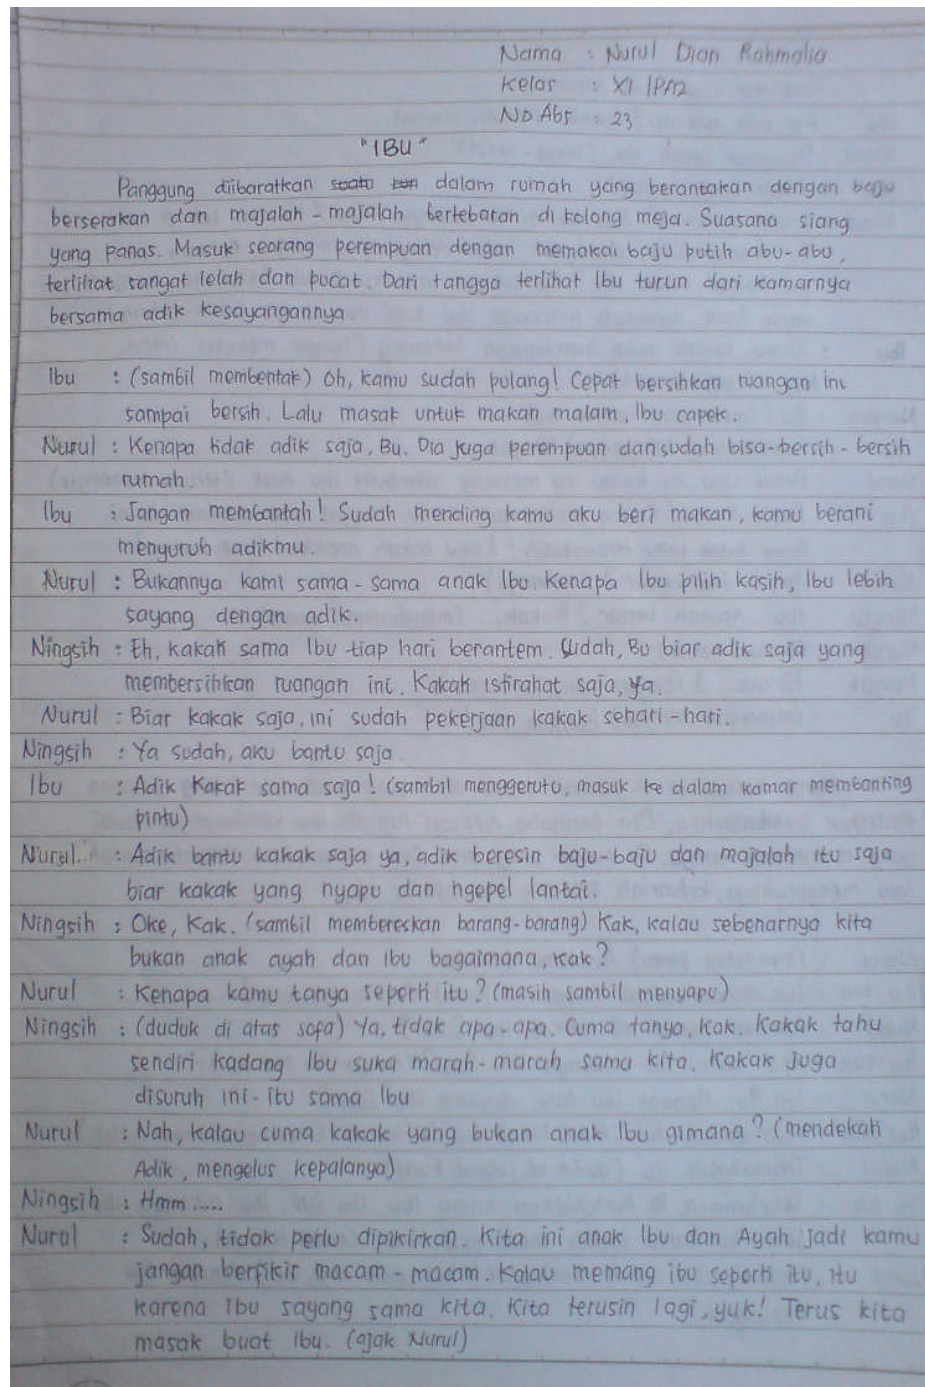 Nama : Nurul Dian Rahmalia
Kelas : XI IPA2
No.Abs : 23
"IBU"
Panggung diibaratkan dalam rumah yang berantakan dengan baju
berserakan dan majalah-majalah bertebaran di kolong meja. Suasana siang
yang panas. Masuk seorang perempuan dengan memakai baju putih abu-abu,
terlihat sangat lelah dan pucat. Dari tangga terlihat Ibu turun dari kamarnya
bersama adik kesayangannya
Ibu : (sambil membentak) Oh, kamu sudah pulang! Cepat bersihkan ruangan ini
sampai bersih. Lalu masak untuk makan malam, Ibu capek.
Nurul : Kenapa tidak adik saja, Bu. Dia juga perempuan dan sudah bisa bersih-bersih
rumah.
Ibu : Jangan membantah! Sudah mending kamu aku beri makan, kamu berani
menyuruh adikmu.
Nurul : Bukannya kami sama-sama anak Ibu. Kenapa Ibu pilih kasih, Ibu lebih
sayang dengan adik.
Ningsih : Eh, kakak sama Ibu tiap hari berantem. Sudah, Bu biar adik saja yang
membersihkan ruangan ini. Kakak istirahat saja, ya.
Nurul : Biar kakak saja, ini sudah pekerjaan kakak sehari-hari.
Ningsih : Ya sudah, aku bantu saja
Ibu : Adik Kakak sama saja! (sambil menggerutu, masuk ke dalam kamar membanting
pintu)
Nurul : Adik bantu kakak saja ya, adik beresin baju-baju dan majalah itu saja
biar kakak yang nyapu dan ngepel lantai.
Ningsih : Oke, Kak. (sambil membereskan barang-barang) Kak, kalau sebenarnya kita
bukan anak ayah dan ibu bagaimana, kak?
Nurul : Kenapa kamu tanya seperti itu? (masih sambil menyapu)
Ningsih : (duduk di atas sofa) Ya, tidak apa-apa. Cuma tanya, Kak. Kakak tahu
sendiri kadang Ibu suka marah-marah sama kita. Kakak juga
disuruh ini-itu sama Ibu
Nurul : Nah, kalau cuma kakak yang bukan anak Ibu gimana? (mendekati
Adik, mengelus kepalanya)
Ningsih : Hmm.....
Nurul : Sudah, tidak perlu dipikirkan. Kita ini anak Ibu dan Ayah jadi kamu
jangan berpikir macam-macam. Kalau memang ibu seperti itu, itu
karena Ibu sayang sama kita. Kita terusin lagi, yuk! Terus kita
masak buat Ibu. (ajak Nurul)